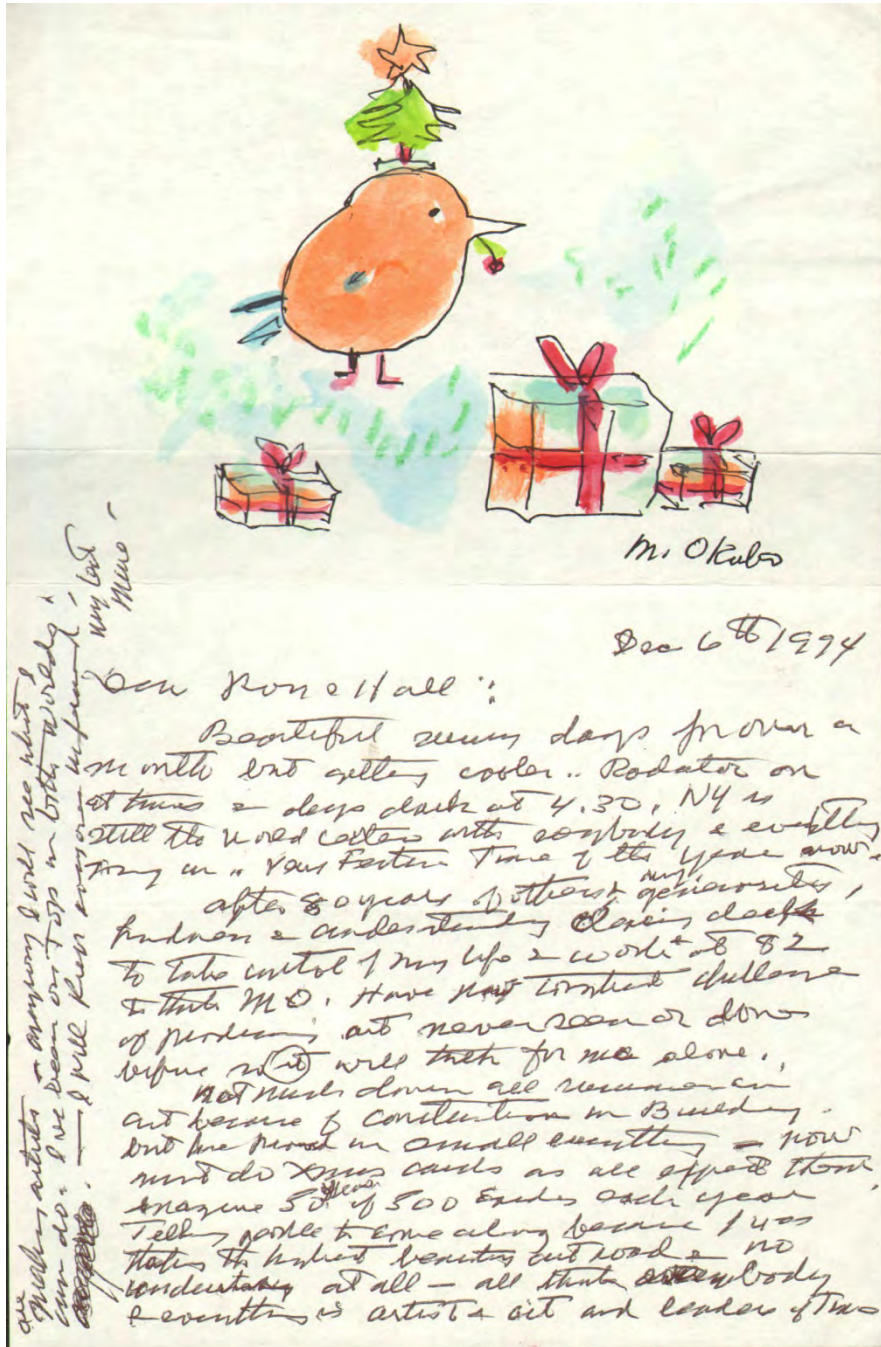 M. Okubo
Dec 6th 1994
Dear Hall:
Beautiful sunny days for over a
month but getting cooler.. Radiator on
at times & days dark at 4.30. NY is
still the world center with everybody & everything
Festive Time of the year now.
After 80 years of others & my generosities,
kindness & understanding
to take control of my life & work at 82
M O. Have constant challenge
of producing art never seen or done
before so it will for me alone.
Not much done all summer in
art because of construction in Building.
but have in small everything - now
must do Xmas cards as all expect them
Imagine 50 years of 500 each year
Telling people to come along because I was
the highest art road & no
at all - all think everybody
& everything is artist & art and leaders of Time
are making artists - anyway I will see what I
can do. I've been on Top in both worlds.
- I will keep everyone informed -
my best
Mine -